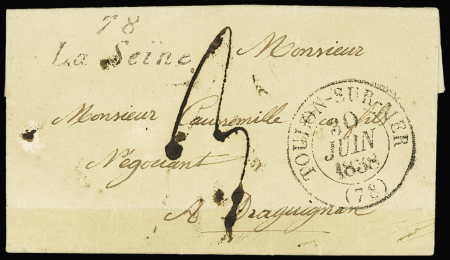 78
La Seine
Monsieur
Monsieur Lauremille fils
Négociant
A Draguignan
3
TOULON-SUR-MER
30
JUIN
1838
(78)